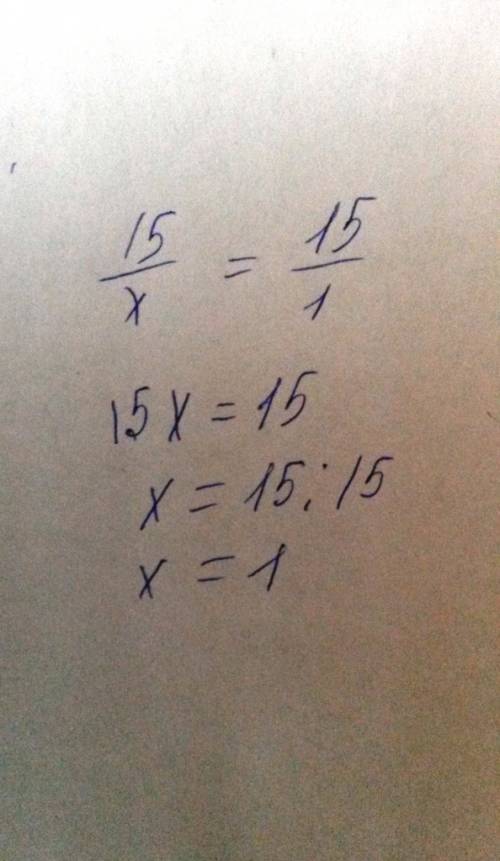 15/x = 15/1
15x = 15
x = 15 : 15
x = 1